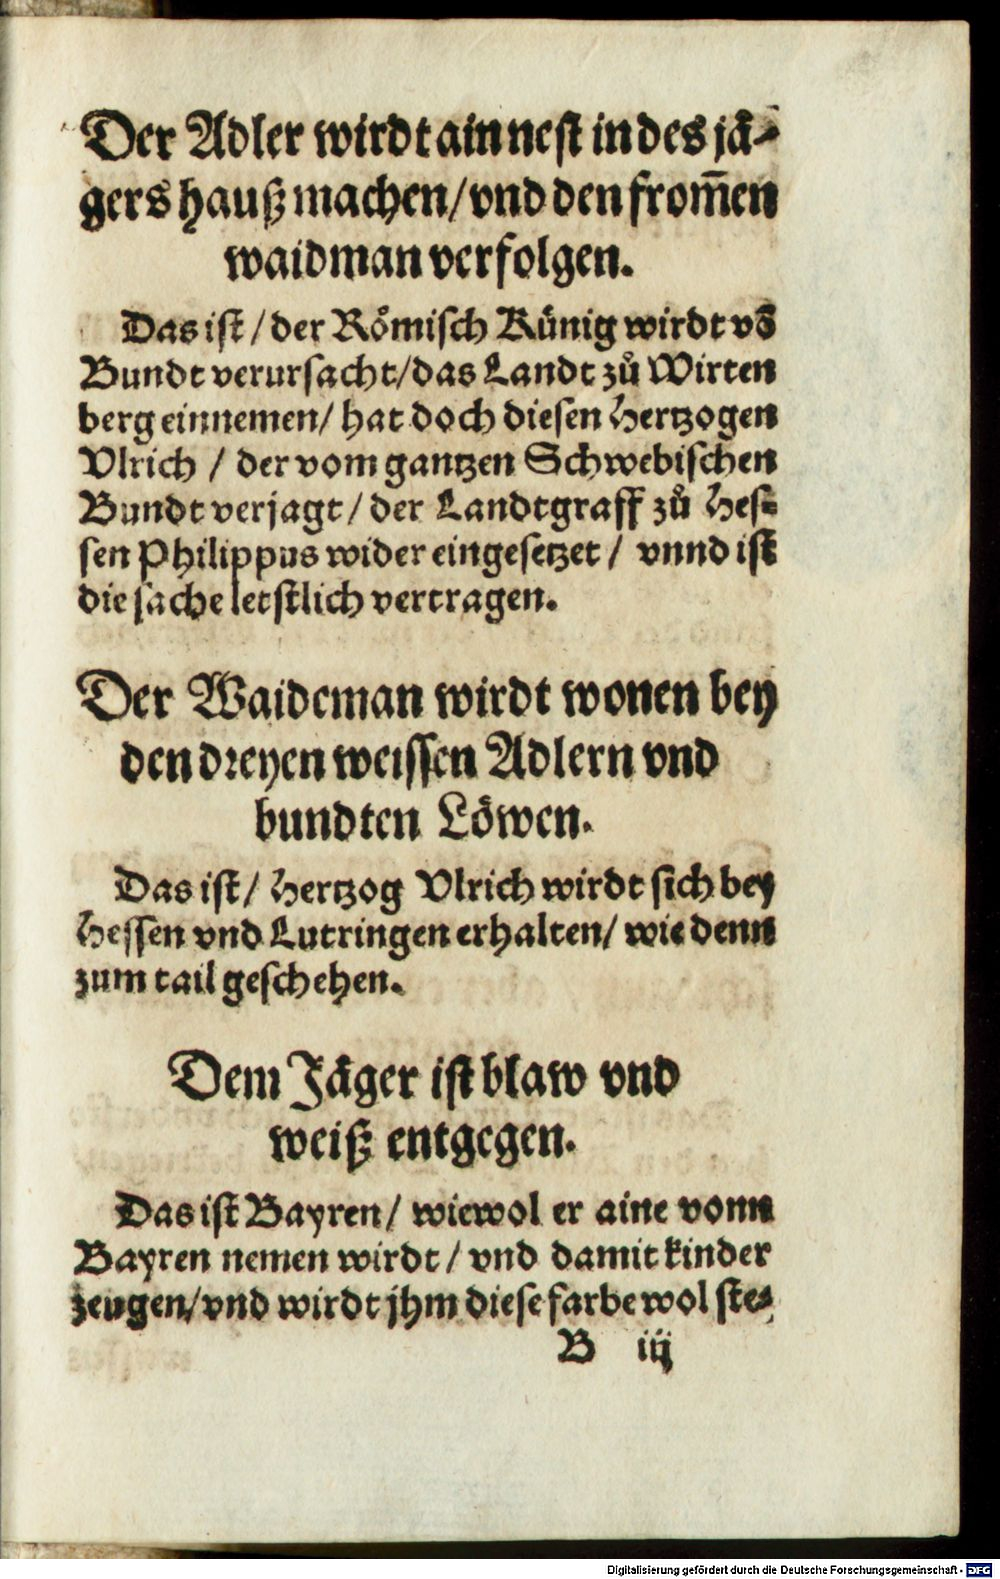 Der Adler wirdt ain nest in des jaͤ-
gers hauß machen/ vnd den from̄en
waidman verfolgen.
Das ist/ der Roͤmisch Kuͤnig wirdt vō
Bundt verursacht/ das Landt zuͦ Wirten
berg einnemen/ hat doch diesen Hertzogen
Vlrich / der vom gantzen Schwebischen
Bundt verjagt/ der Landtgraff zuͦ Hes-
sen Philippus wider eingesetzet/ vnnd ist
die sache letstlich vertragen.
Der Waideman wirdt wonen bey
den dreyen weissen Adlern vnd
bundten Loͤwen.
Das ist/ Hertzog Vlrich wirdt sich bey
Hessen vnd Lutringen erhalten/ wie denn
zum tail geschehen.
Dem Jaͤger ist blaw vnd
weiß entgegen.
Das ist Bayren/ wiewol er aine vonn
Bayren nemen wirdt/ vnd damit kinder
zeugen/ vnd wirdt jhm diese farbe wol ste-
B iij
Digitalisierung gefördert durch die Deutsche Forschungsgemeinschaft - DFG